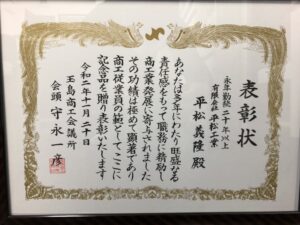 表彰状
永年勤続二十年以上
有限会社 平松工業
平松義隆 殿
あなたは多年にわたり旺盛なる
責任感をもって職務に精励し
商工業発展に寄与されました
その功績は極めて顕著であり
商工従業員の範としてここに
記念品を贈り表彰いたします
令和二年十一月二十日
玉島商工会議所
会頭 守永一彦